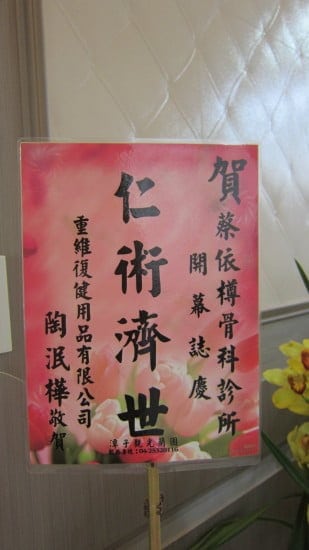 賀蔡依樽骨科診所
開幕誌慶
仁術濟世
重維復健用品有限公司
陶泯樺敬賀
潭子觀光蘭園